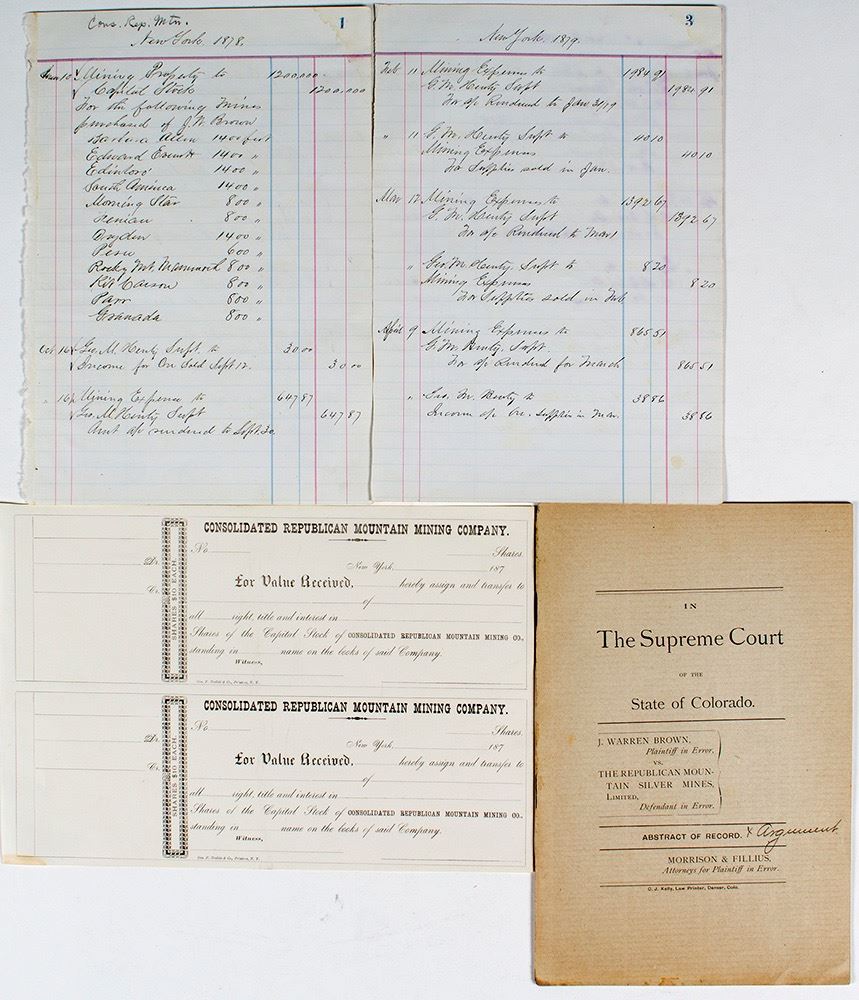 Cons. Rep. Mtn. 1
New York 1878.
Mining Property to 1200,000.
Capital Stock 1200.000
For the following Mines
purchased of J. W. Brown
Barbara Allen 1400 feet
Edward Everett 1400 "
Edinboro' 1400 "
South America 1400 "
Morning Star 800 "
Fenian 800 "
Dryden 1400 "
Peru 600 "
Rocky Mt. Mammoth 800 "
Kit Carson 800 "
Parr 800 "
Granada 800 "
Oct 16 Geo. M. Henty Supt. to 30 00
Income for Ore Sold Sept 12. 30 00
" 16 Mining Expense to 647 87
Geo. M. Henty Supt 647 87
Amt a/c rendered to Sept. 30.
3
New York 1879.
Feb 11 Mining Expenses to 1984 91
G. M. Henty Supt 1984 91
For a/c Rendered to Jan 31/79
" 11 G. M. Henty Supt to 40 10
Mining Expenses 40 10
For Supplies sold in Jan.
Mar 12 Mining Expenses to 1392 67
G. M. Henty Supt 1392 67
For a/c Rendered to Mar 1
" Geo. M. Henty. Supt to 8 20
Mining Expenses 8 20
For Supplies sold in Feb
April 9 Mining Expenses to 865 51
G. M. Henty Supt.
For a/c Rendered for March 865 51
" Geo. M. Henty to 38 86
Income a/c Ore. Supplies in Mar. 38 86
CONSOLIDATED REPUBLICAN MOUNTAIN MINING COMPANY.
No. Shares.
Dr. New York, 187
SHARES $10 EACH.
For Value Received, hereby assign and transfer to
Cr. of
all right, title and interest in
Shares of the Capital Stock of CONSOLIDATED REPUBLICAN MOUNTAIN MINING CO.,
standing in name on the books of said Company.
Witness,
CONSOLIDATED REPUBLICAN MOUNTAIN MINING COMPANY.
No. Shares.
Dr. New York, 187
SHARES $10 EACH.
For Value Received, hereby assign and transfer to
Cr. of
all right, title and interest in
Shares of the Capital Stock of CONSOLIDATED REPUBLICAN MOUNTAIN MINING CO.,
standing in name on the books of said Company.
Witness,
IN
The Supreme Court
OF THE
State of Colorado.
J. WARREN BROWN,
Plaintiff in Error,
vs.
THE REPUBLICAN MOUN-
TAIN SILVER MINES,
LIMITED,
Defendant in Error.
ABSTRACT OF RECORD. & Argument
MORRISON & FILLIUS,
Attorneys for Plaintiff in Error.
C. J. Kelly, Law Printer, Denver, Colo.